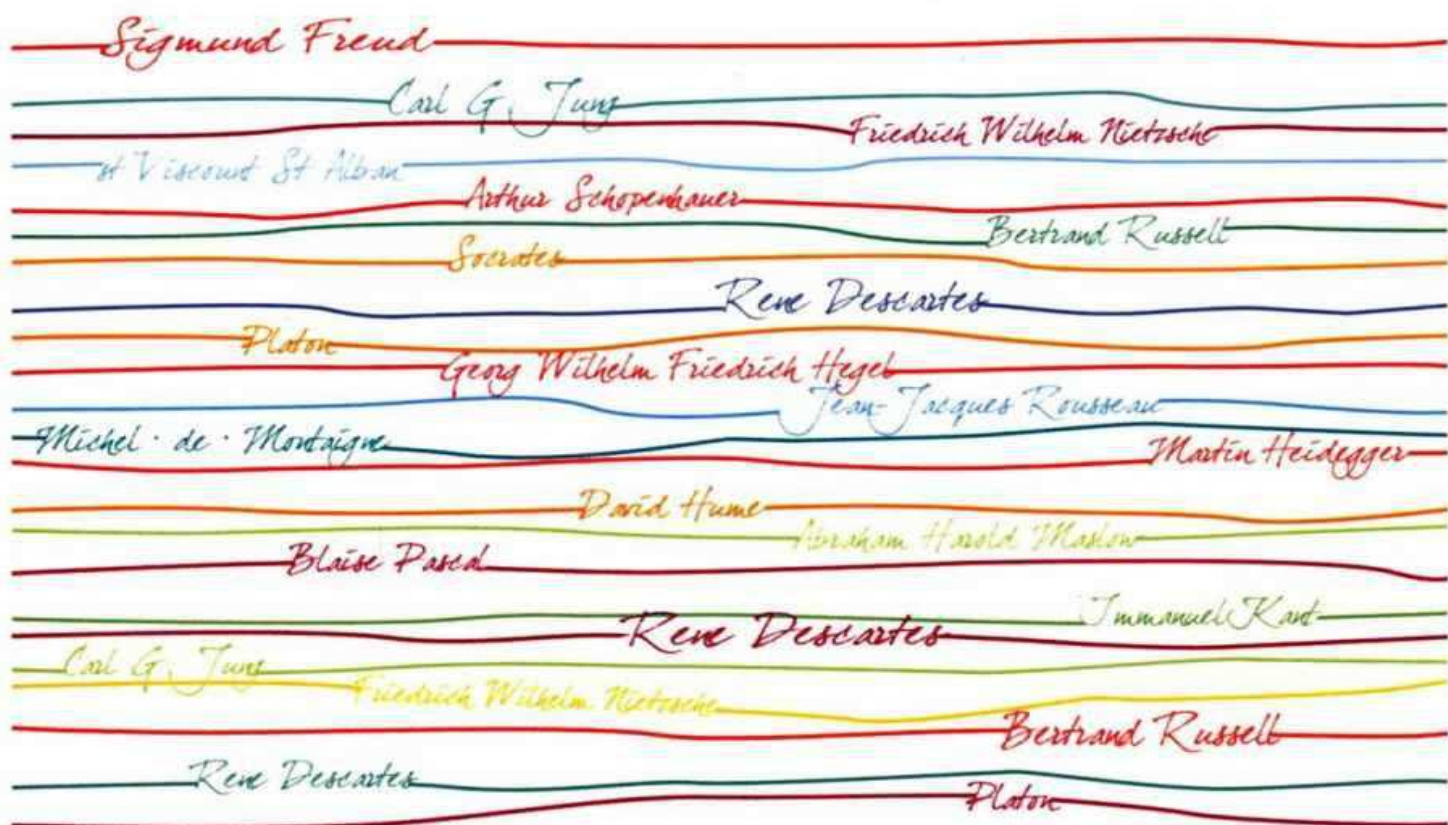 Sigmund Freud
Carl G. Jung
Friedrich Wilhelm Nietzsche
st Viscount St Alban
Arthur Schopenhauer
Bertrand Russell
Socrates
Rene Descartes
Platon
Georg Wilhelm Friedrich Hegel
Jean-Jacques Rousseau
Michel · de · Montaigne
Martin Heidegger
David Hume
Abraham Harold Maslow
Blaise Pascal
Immanuel Kant
Rene Descartes
Carl G. Jung
Friedrich Wilhelm Nietzsche
Bertrand Russell
Rene Descartes
Platon